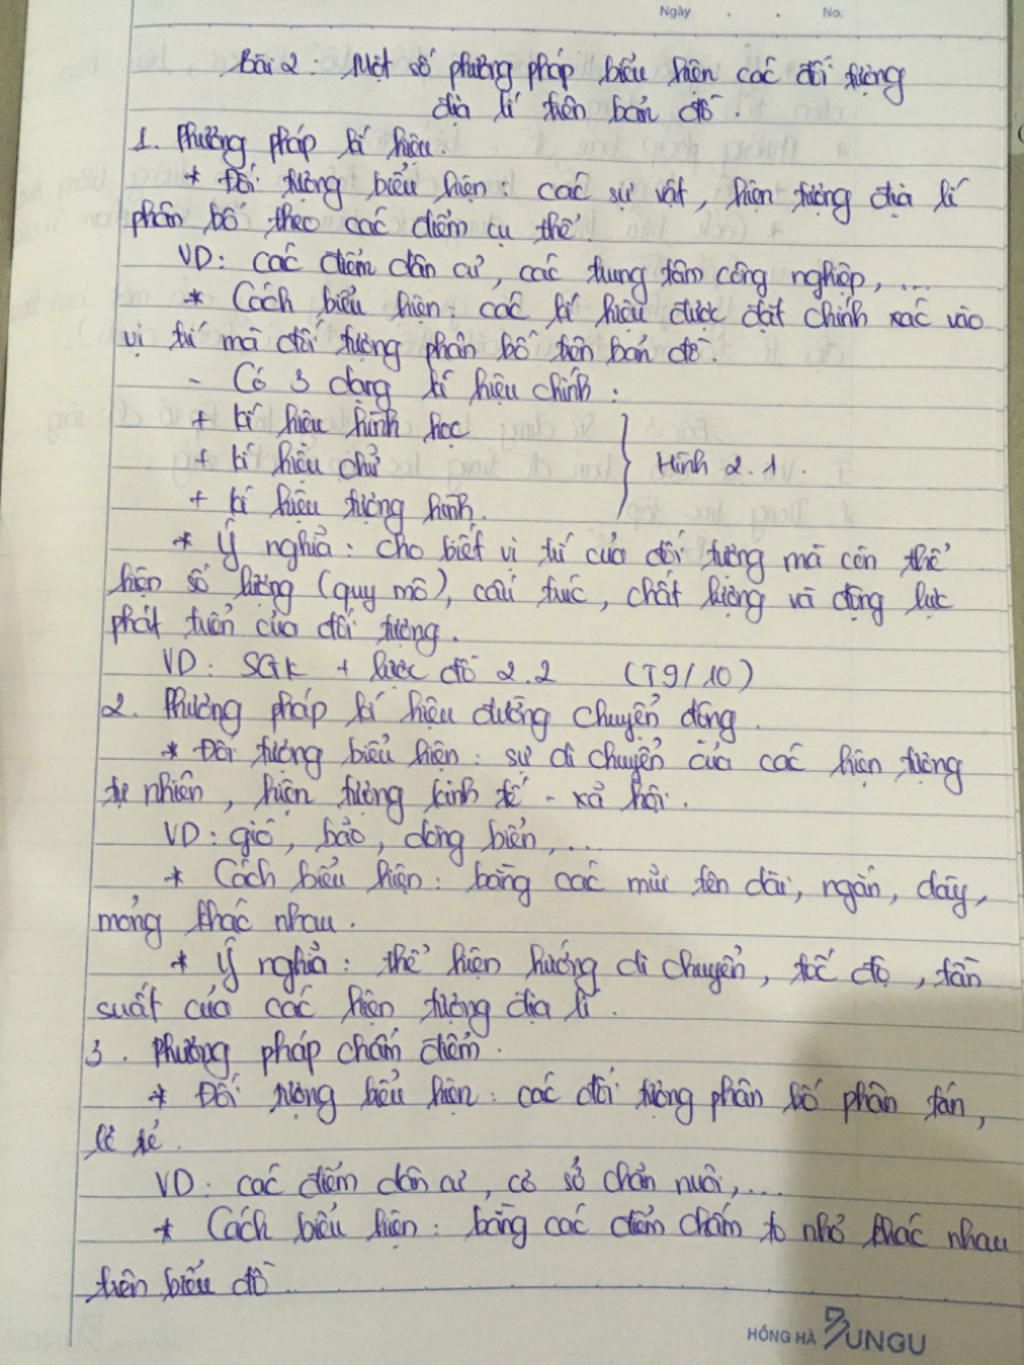 Ngày . . No.
Bài 2: Một số phương pháp biểu hiện các đối tượng
địa lí trên bản đồ.
1. Phương pháp kí hiệu.
* Đối tượng biểu hiện: các sự vật, hiện tượng địa lí
phân bố theo các điểm cụ thể.
VD: các điểm dân cư, các trung tâm công nghiệp, ...
* Cách biểu hiện: các kí hiệu được đặt chính xác vào
vị trí mà đối tượng phân bố trên bản đồ.
- Có 3 dạng kí hiệu chính:
+ kí hiệu hình học
+ kí hiệu chữ } Hình 2.1.
+ kí hiệu tượng hình.
* Ý nghĩa: cho biết vị trí của đối tượng mà còn thể
hiện số lượng (quy mô), cấu trúc, chất lượng và động lực
phát triển của đối tượng.
VD: SGK + lược đồ 2.2 (T9/10)
2. Phương pháp kí hiệu đường chuyển động.
* Đối tượng biểu hiện: sự di chuyển của các hiện tượng
tự nhiên, hiện tượng kinh tế - xã hội.
VD: gió, bão, dòng biển, ...
* Cách biểu hiện: bằng các mũi tên dài, ngắn, dày,
mỏng khác nhau.
* Ý nghĩa: thể hiện hướng di chuyển, tốc độ, tần
suất của các hiện tượng địa lí.
3. Phương pháp chấm điểm.
* Đối tượng biểu hiện: các đối tượng phân bố phân tán,
lẻ tẻ.
VD: các điểm dân cư, cơ sở chăn nuôi, ...
* Cách biểu hiện: bằng các điểm chấm to nhỏ khác nhau
trên biểu đồ
HỒNG HÀ BUNGU